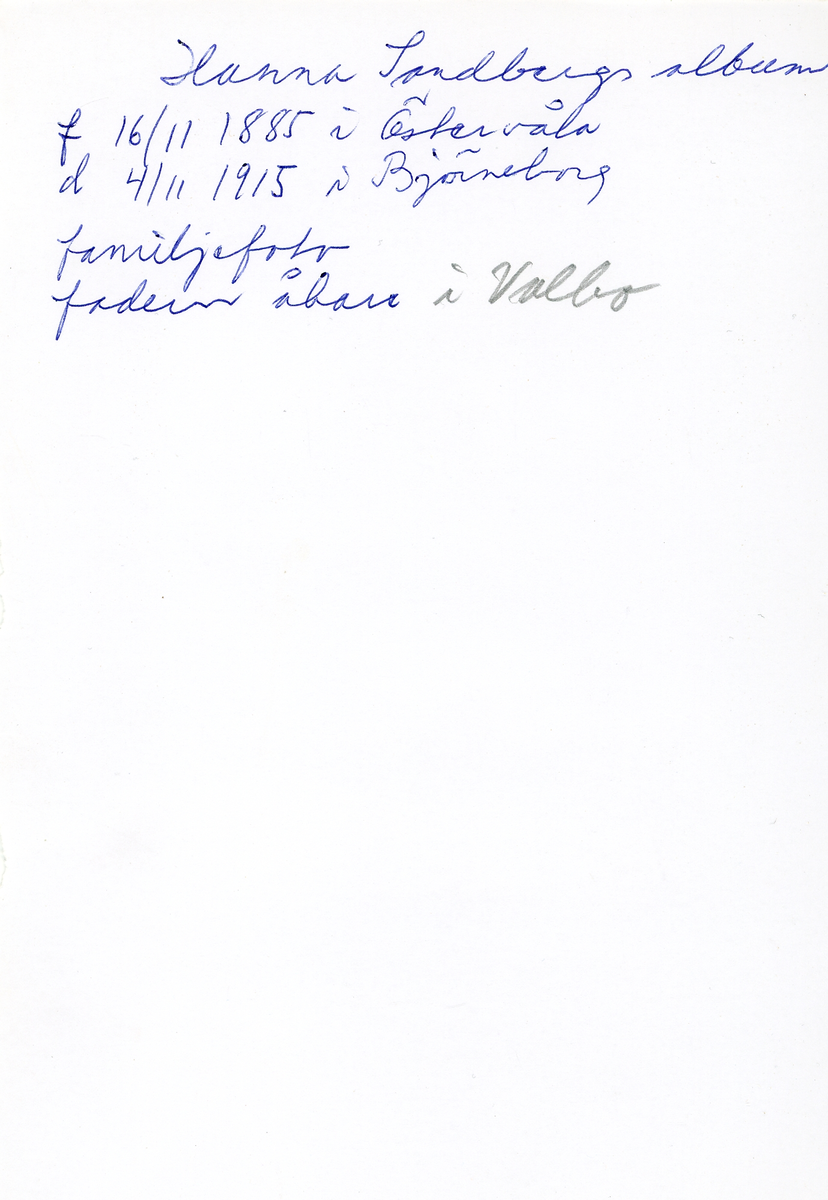 Hanna Sandbergs album
f 16/11 1885 i Östervåla
d 4/11 1915 i Björneborg
familjefoto
fadern åbare i Valbo